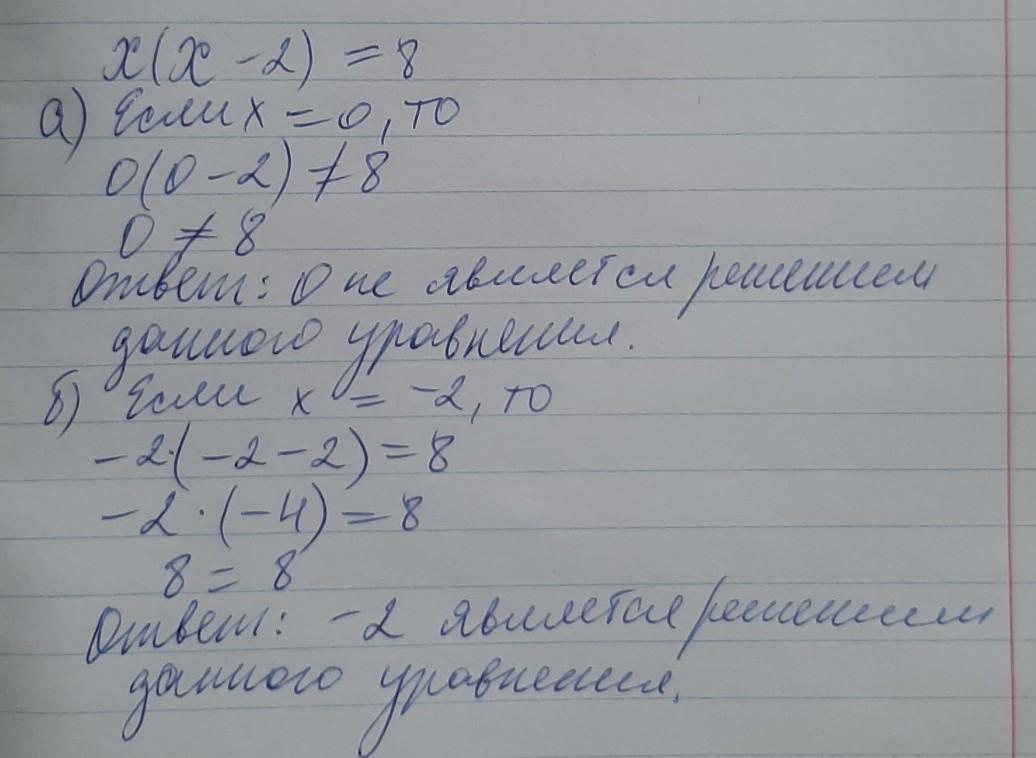 x(x - 2) = 8
а) Если x = 0, то
0(0 - 2) ≠ 8
0 ≠ 8
Ответ: 0 не является решением
данного уравнения.
б) Если x = -2, то
-2·(-2-2) = 8
-2·(-4) = 8
8 = 8
Ответ: -2 является решением
данного уравнения.